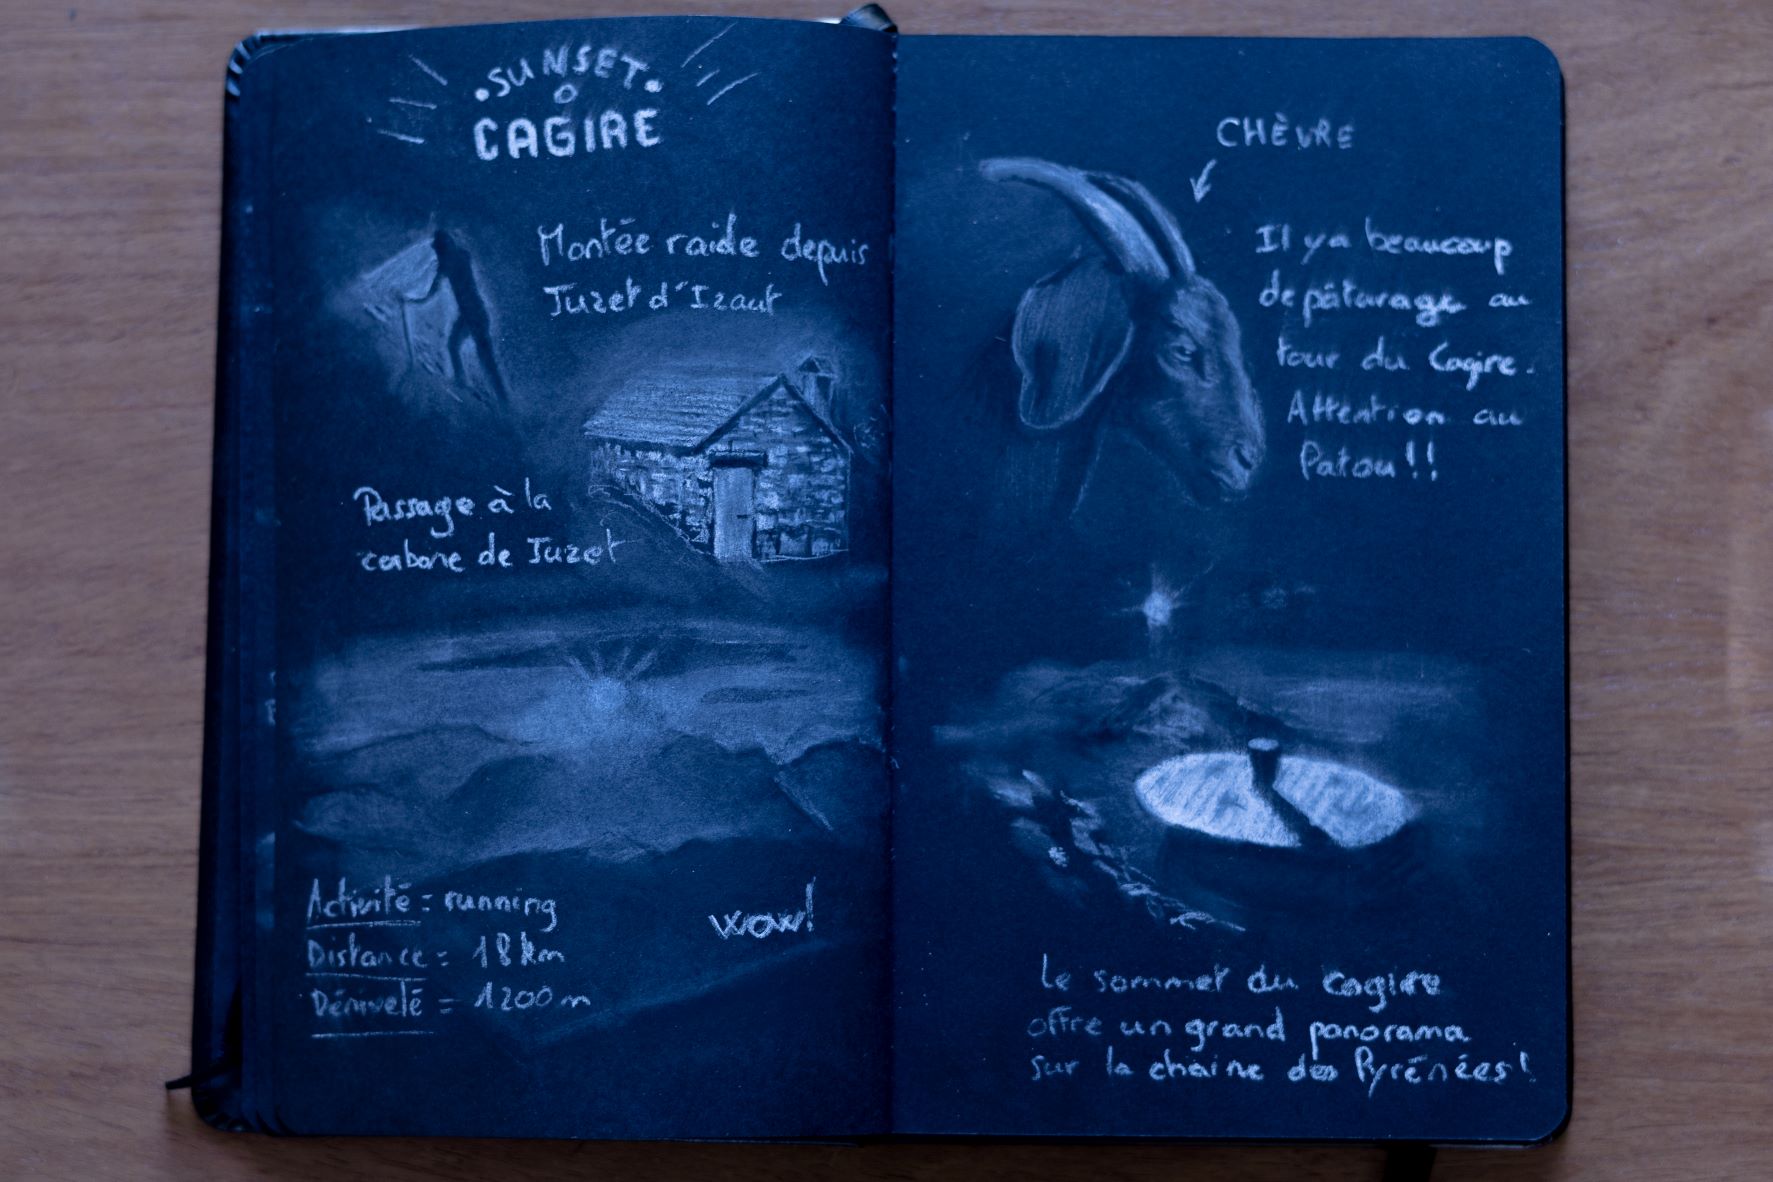 • SUNSET •
O
CAGIRE
Montée raide depuis
Juzet d'Izaut
Passage à la
cabane de Juzet
Activité = running
Distance = 18 km
Dénivelé = 1200 m
wow!
CHÈVRE
Il y a beaucoup
de pâturage au
tour du Cagire.
Attention au
Patou!!
Le sommet du cagire
offre un grand panorama
sur la chaine des Pyrénées!